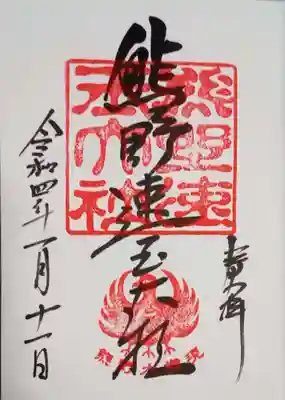 奉拝
熊野速玉大社
熊野速
玉大社
令和四年一月十一日